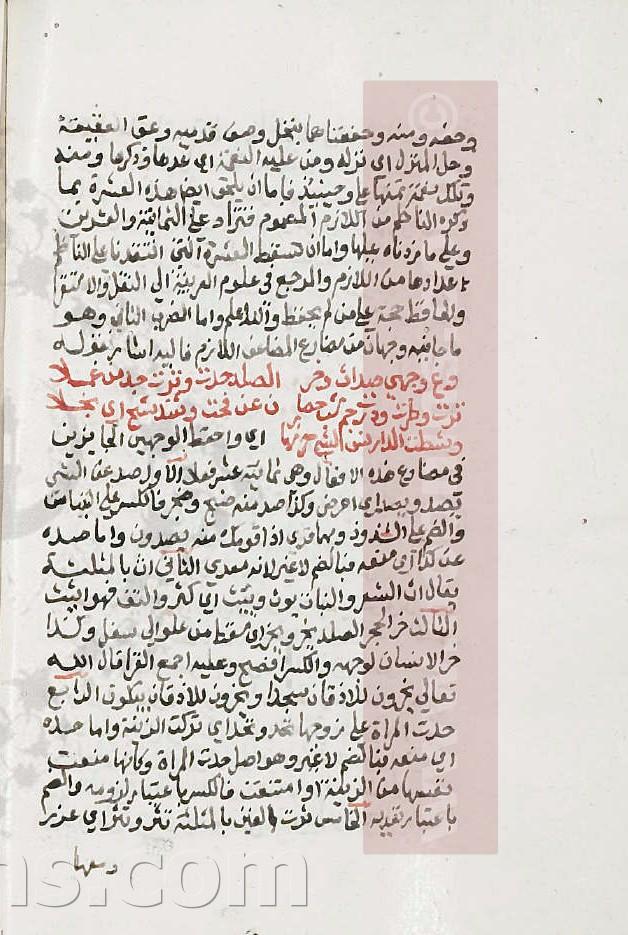 وحل المنزل اي نزله ومن عليه النعمة اي عدها وذكرها ومنه
وتلك نعمة تمنها علي وحينيذ فاما ان يلحق ايض هذه العشرة بما
ذكره الناظم من اللازم المضموم فتزاد علي الثمانية والعشرين
وعلي ما زدناه عليها واما ان تسقط العشرة التي انتقدنا علي الناظم
عدادها من اللازم والمرجع في علوم العربية الي النقل والاستقرا
والحافظ حجة علي من لم يحفظ والله اعلم واما الضرب الثاني وهو
ما جا فيه وجهان من مضارع المضاعف اللازم فاليه اشار بقوله
وع وجهي صد اث وخر الصلد حدت وثرت جد من عملا
ترت وطرت ودرت جم شب حصان عن فحت وشذ شح اي بخلا
وشطت الدار نس الشي حر نهار اي واحفظ الوجهين الجايزين
في مضارع هذه الافعال وهي ثمانية عشر فعلا الاول صد عن الشي
يصد ويصد اي اعرض وكذا صد منه ضج وضجر فالكسر علي القياس
والضم علي الشذوذ وبهما قري اذا قومك منه يصدون واما صده
عن كذا اي منعه فبالضم لا غير لانه معدي الثاني اث بالمثلثة
يقال اث الشعر والنبات يوث وييث اي كثر والتف فهو اثيث
الثالث خر الحجر الصلد يخر ويخر اي سقط من علو الي سفل وكذا
خر الانسان لوجهه والكسر افصح وعليه اجمع القرا قال الله
تعالي يخرون للاذقان سجدا ويخرون للاذقان يبكون الرابع
حدت المراة علي زوجها تحد وتحد اي تركت الزينة واما حده
اي منعه فبالضم لا غير وهو اصل حدت المراة وكانها منعت
نفسها من الزينة او امتنعت فالكسر باعتبار لزومه والضم
باعتبار تعديه الخامس ثرت العين بالمثلثة تثر وتثر اي غزر